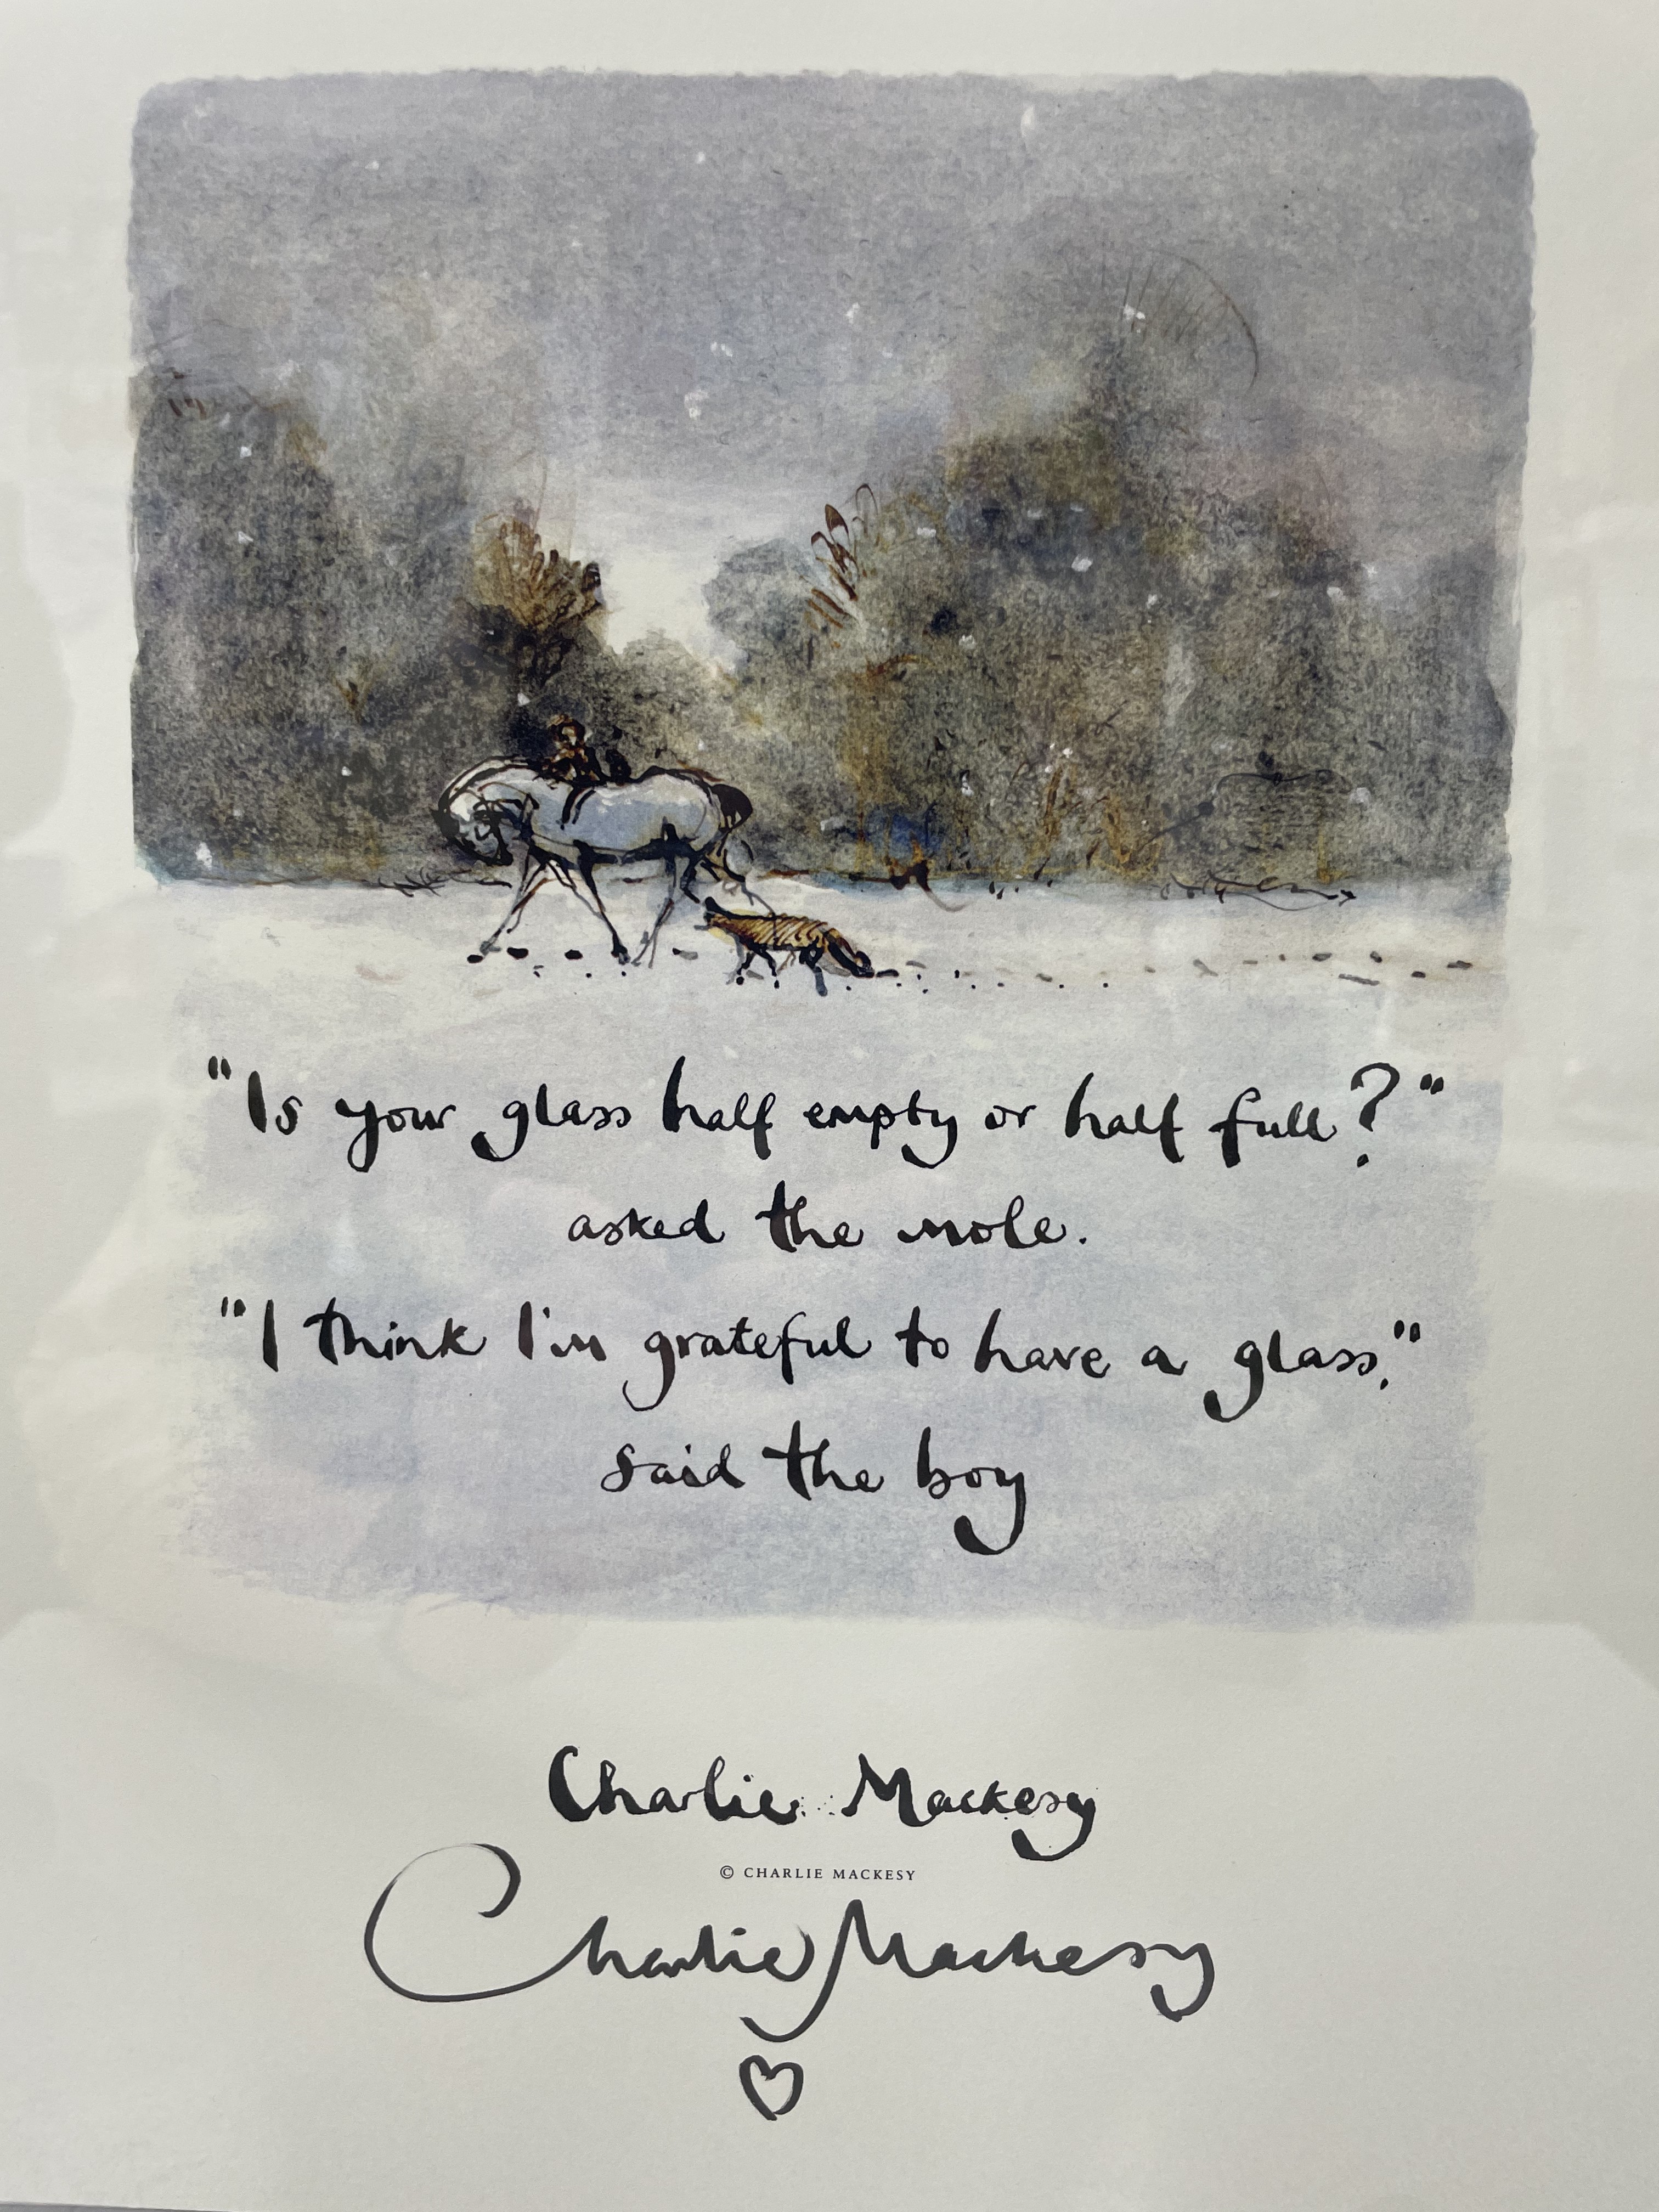 "Is your glass half empty or half full?"
asked the mole.
"I think I'm grateful to have a glass."
said the boy
Charlie Mackesy
© CHARLIE MACKESY
Charlie Mackesy